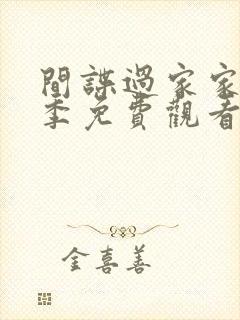 間諜過家家
季免費觀看
金喜善